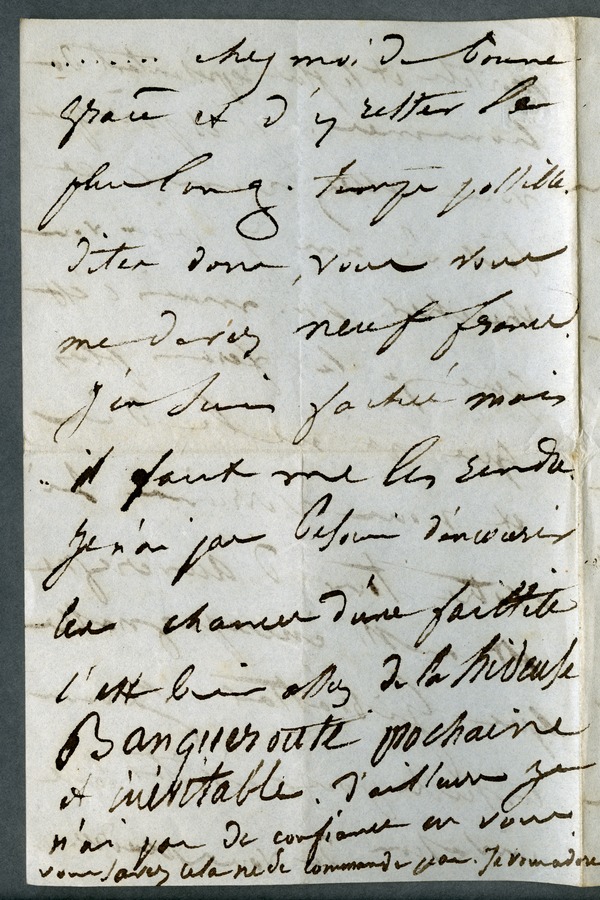 ........ chez moi de bonne
grace et d'y rester le
plus longtemps possible.
dites donc, vous vous
me devez neuf francs.
j'en suis faché mais
il faut me les rendre.
je n'ai pas besoin d'encourir
les chances d'une faillite
c'est bien assez de la hideuse
Banqueroute prochaine
et inévitable. d'ailleurs je
n'ai pas de confiance en vous
vous savez cela ne se commande pas. Je vous adore